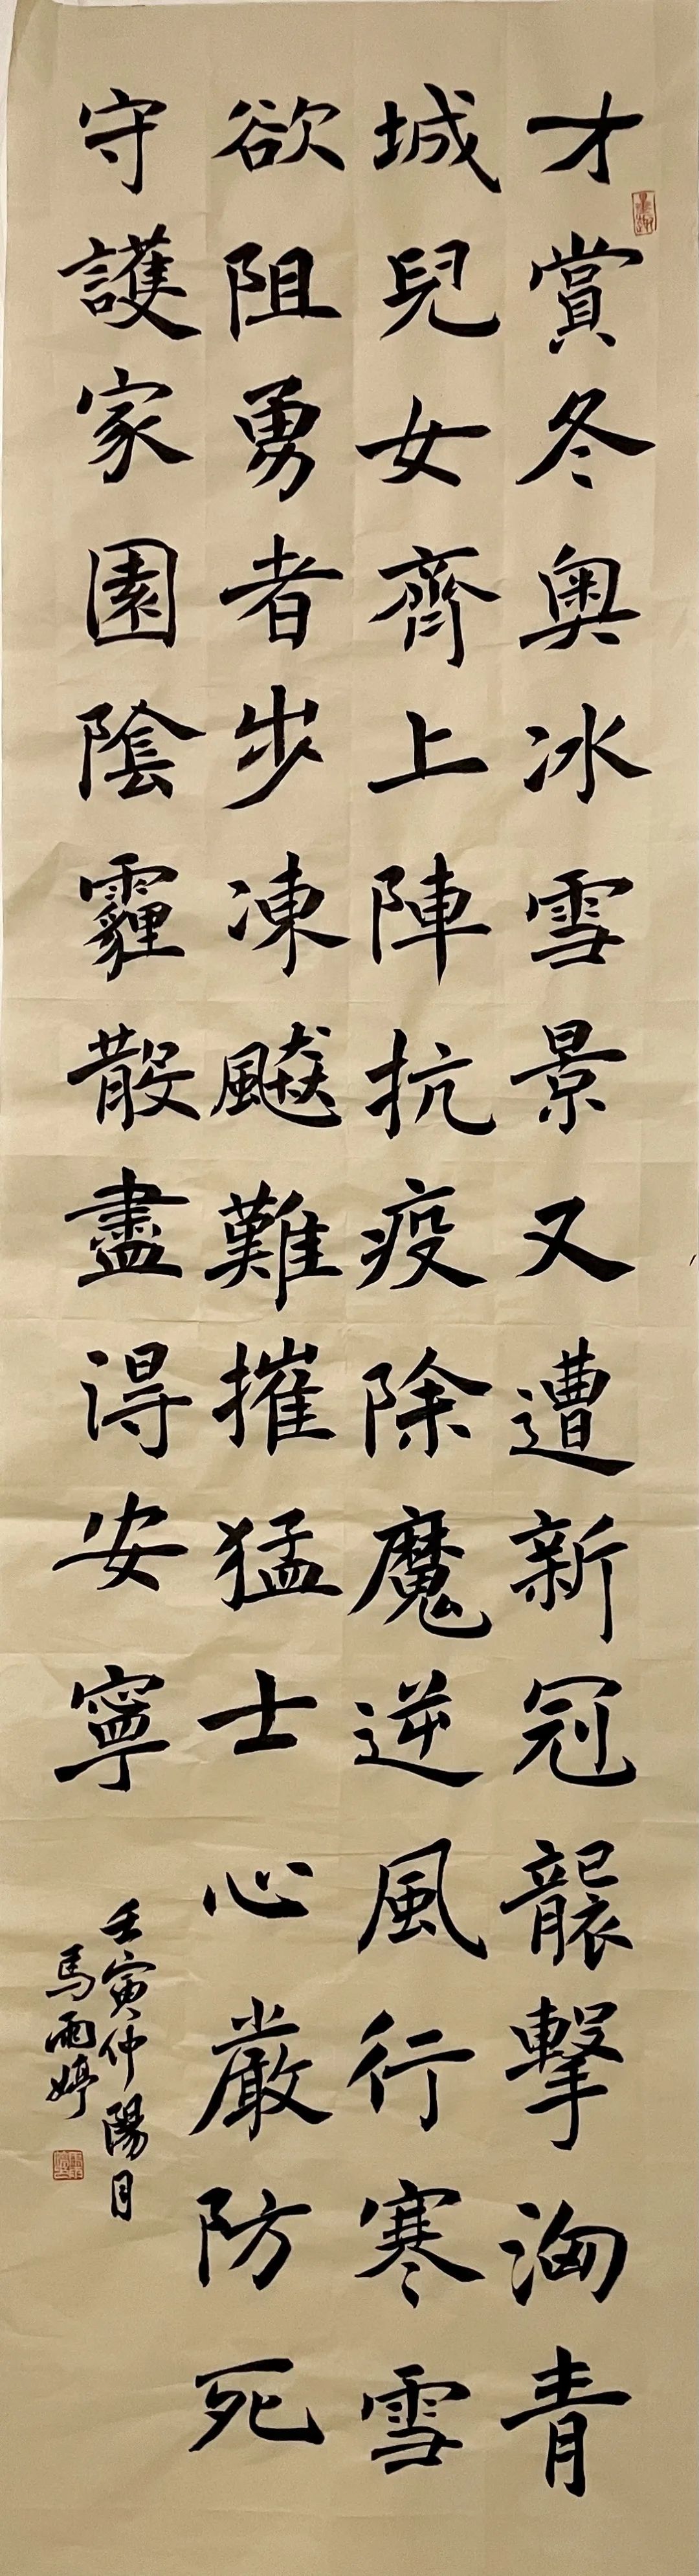 才賞冬奧冰雪景又遭新冠襲擊洶青
城兒女齊上陣抗疫除魔逆風行寒雪
欲阻勇者步凍飈難摧猛士心嚴防死
守護家園陰霾散盡得安寧
壬寅仲陽月
馬雨婷